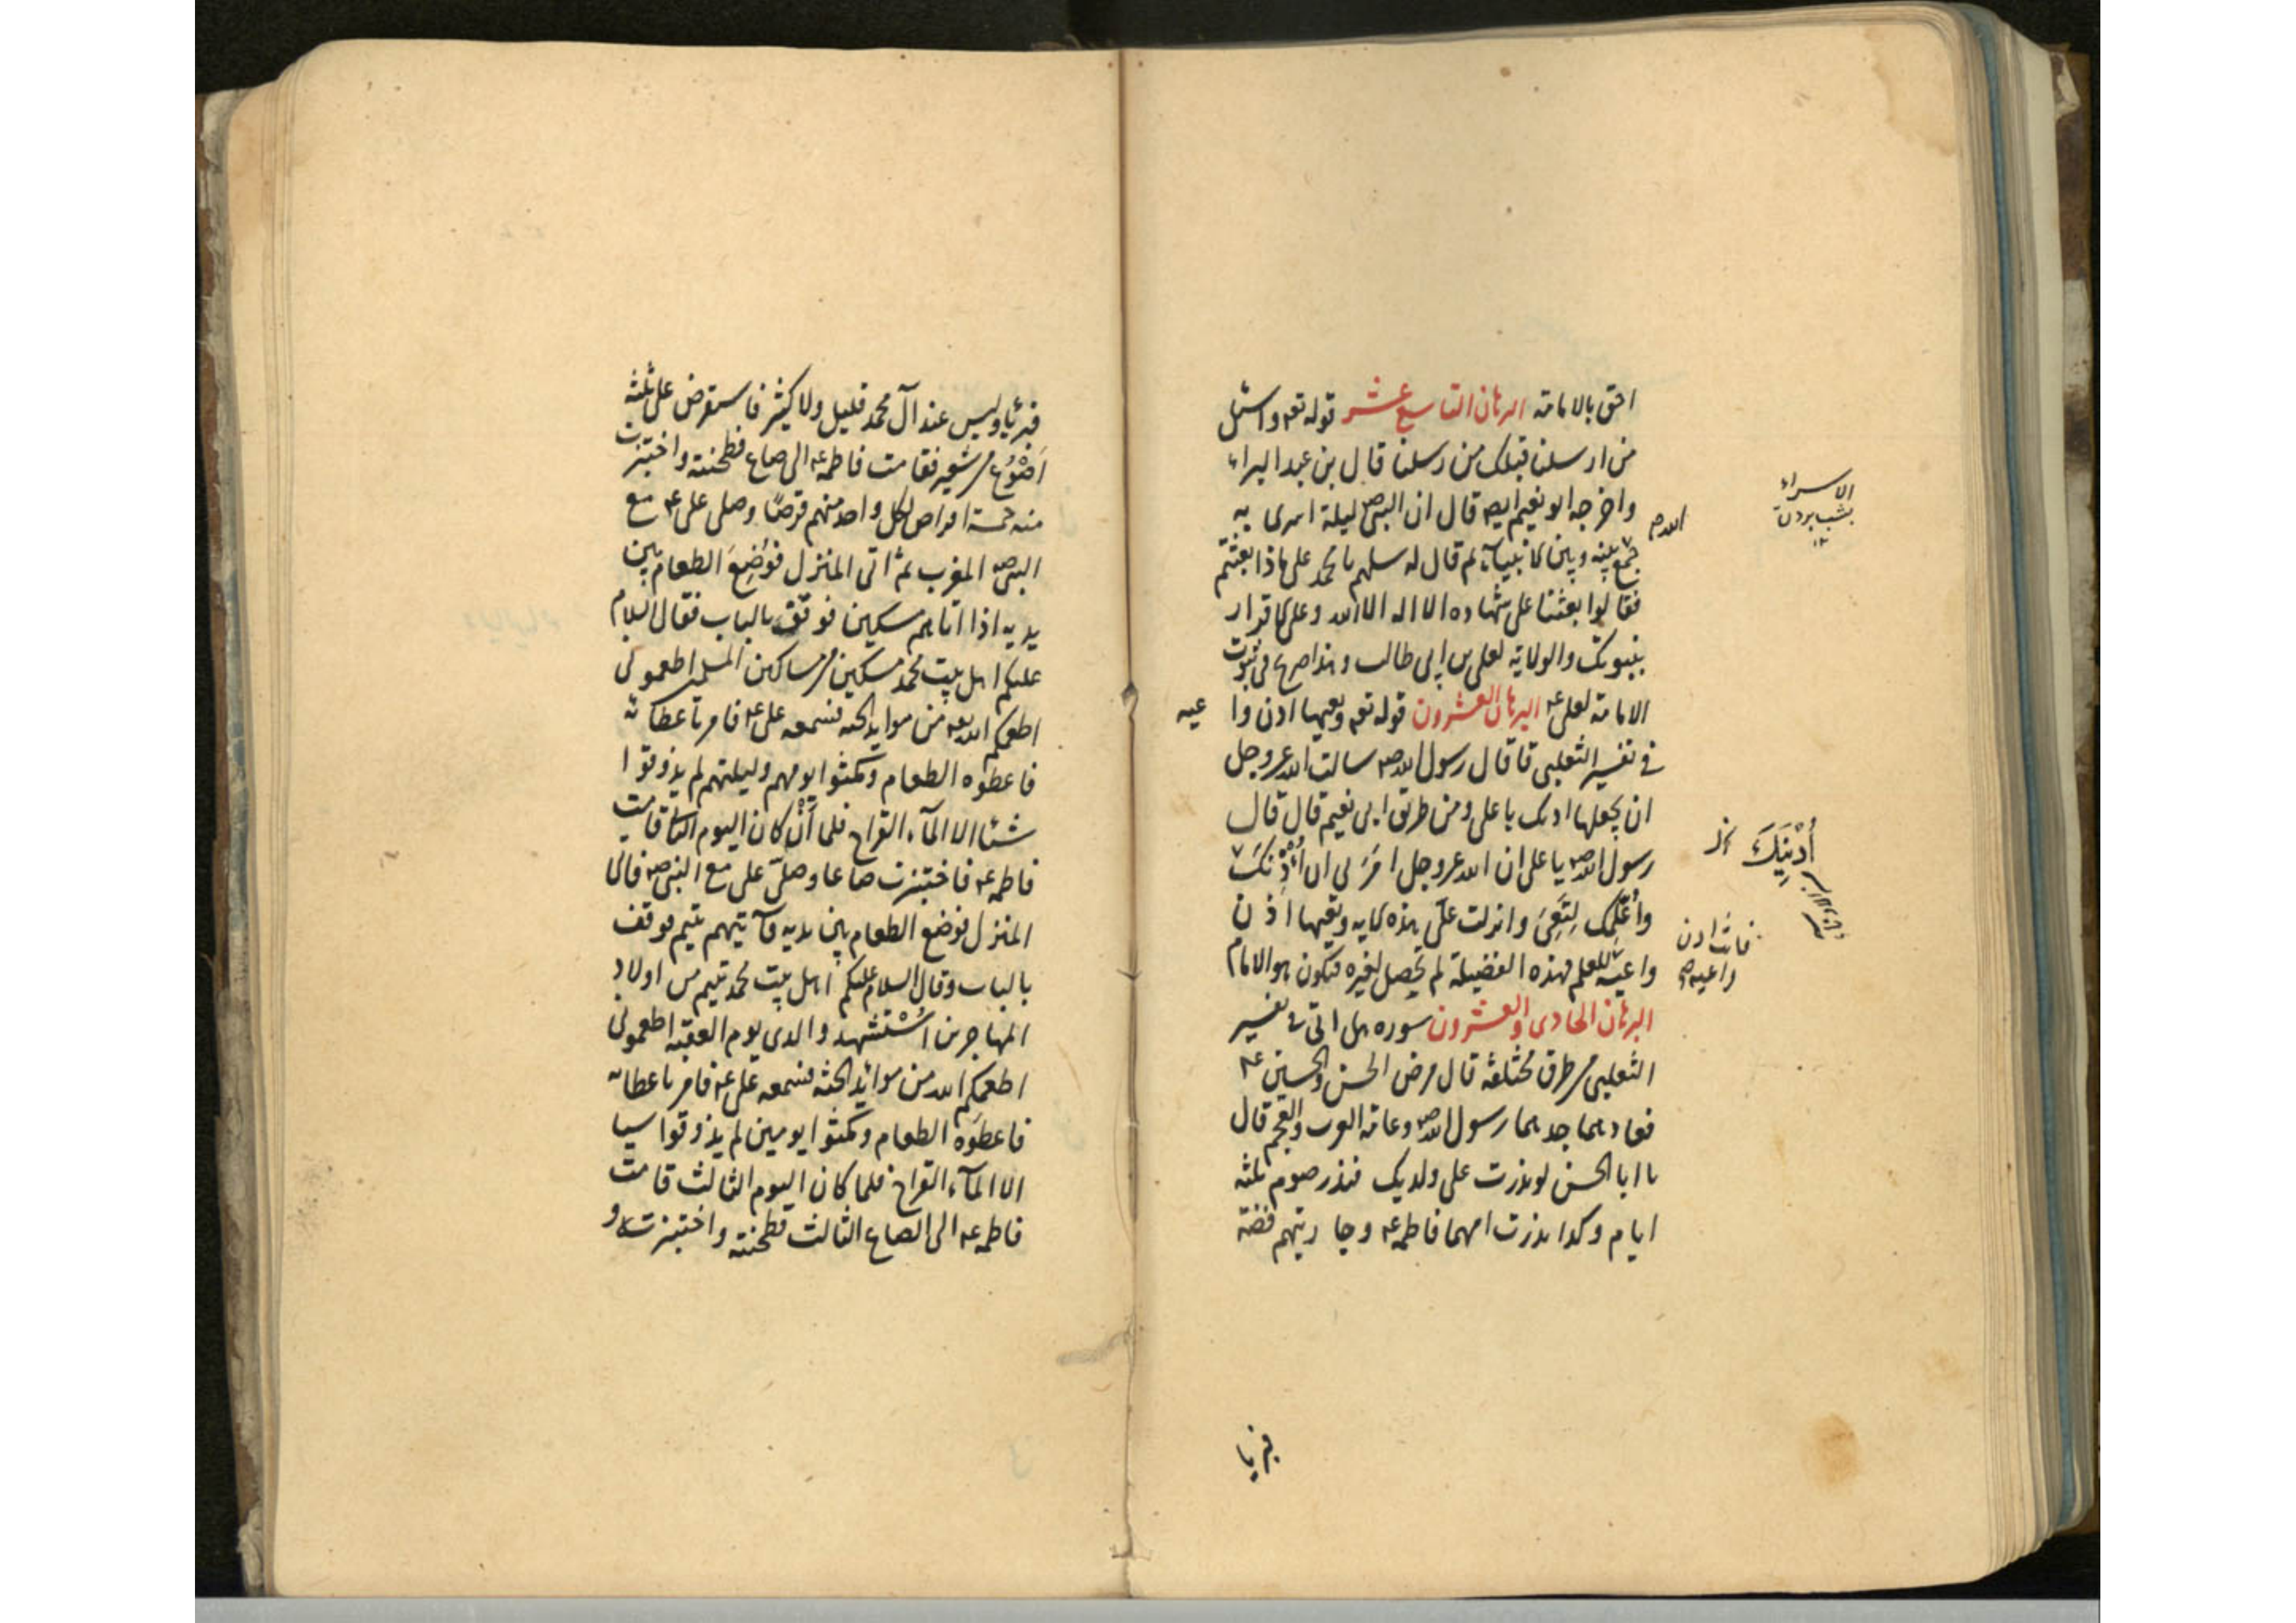 احق بالامامة البرهان التاسع عشر قوله تعه واسئل
من ارسلنا قبلك من رسلنا قال بن عبد البراء
واخرجه ابو نعيم ايضه قال ان النبى صه ليلة اسرى به
جمع بينه وبين الانبياء ثم قال له سلهم يا محمد على ماذا بعثتم
فقالوا بعثنا على شهاده الا اله الا الله وعلى الاقرار
بنبوتك والولاية لعلى بن ابى طالب وهذا صريح فى ثبوت
الامامة لعلى عه البرهان العشرون قوله تعه وتعيها اذن وا عيه
فى تفسير الثعلبى قا قال رسول الله صه سالت الله عز وجل
ان يجعلها اذنك يا على ومن طريق ابى نعيم قال قال
رسول الله صه يا على ان الله عز وجل امرنى ان اُدْنِكَ
واُعَلِّمك لِتَعِىَ وانزلت علَىّ هذه الايه وتعيها اذن
واعية للعلم فهذه الفضيلة لم يحصل لغيره فيكون هو الامام
البرهان الحادى والعشرون سوره هل اتى فى تفسير
الثعلبى من طرق مختلفة قال مرض الحسن والحسين عه
فعادهما جدهما رسول الله صه وعامة العرب والعجم قال
يا ابا الحسن لو نذرت على ولديك فنذر صوم ثلثه
ايام وكذا نذرت امهما فاطمه عه وجاريتهم فضة
الله
الاسراء
بشب بردن
اُدْنِيَكَ
فانت اذن
واعيه
فبرئا
فبرئا وليس عند آل محمد قليل ولا كثير فاستقرض على ثلثة
اَصْوُع من شعير فقامت فاطمه عه الى صاع فطحنته واختبزت
منه خمسة اقراص لكل واحد منهم قرصًا وصلى على عه مع
النبى صه المغرب ثم اتى المنزل فَوُضِعَ الطعام بين
يديه اذا اتاهم مسكين فوقف بالباب فقال السلام
عليكم اهل بيت محمد مسكين من مساكين المسلمين اطعمونى
اطعمكم الله تعه من موايد الجنه فسمعه على عه فامر باعطائه
فاعطوه الطعام ومكثوا يومهم وليلتهم لم يذوقوا
شئا الا المآء القراح فلما اَنْ كان اليوم الثانى قامت
فاطمه عه فاختبزت صاعا وصلّى على مع النبى صه فاتى
المنزل فوضع الطعام بين يديه فآتيهم يتيم فوقف
بالباب وقال السلام عليكم اهل بيت محمد يتيم من اولاد
المهاجرين اُسْتُشهد والدى يوم العقبة اطعمونى
اطعمكم الله من موائد الجنة فسمعه على عه فامر باعطائه
فاعطَوه الطعام ومكثوا يومين لم يذوقوا سيا
الا المآء القراح فلما كان اليوم الثالث قامت
فاطمه عه الى الصاع الثالث فطحنته واختبزته و